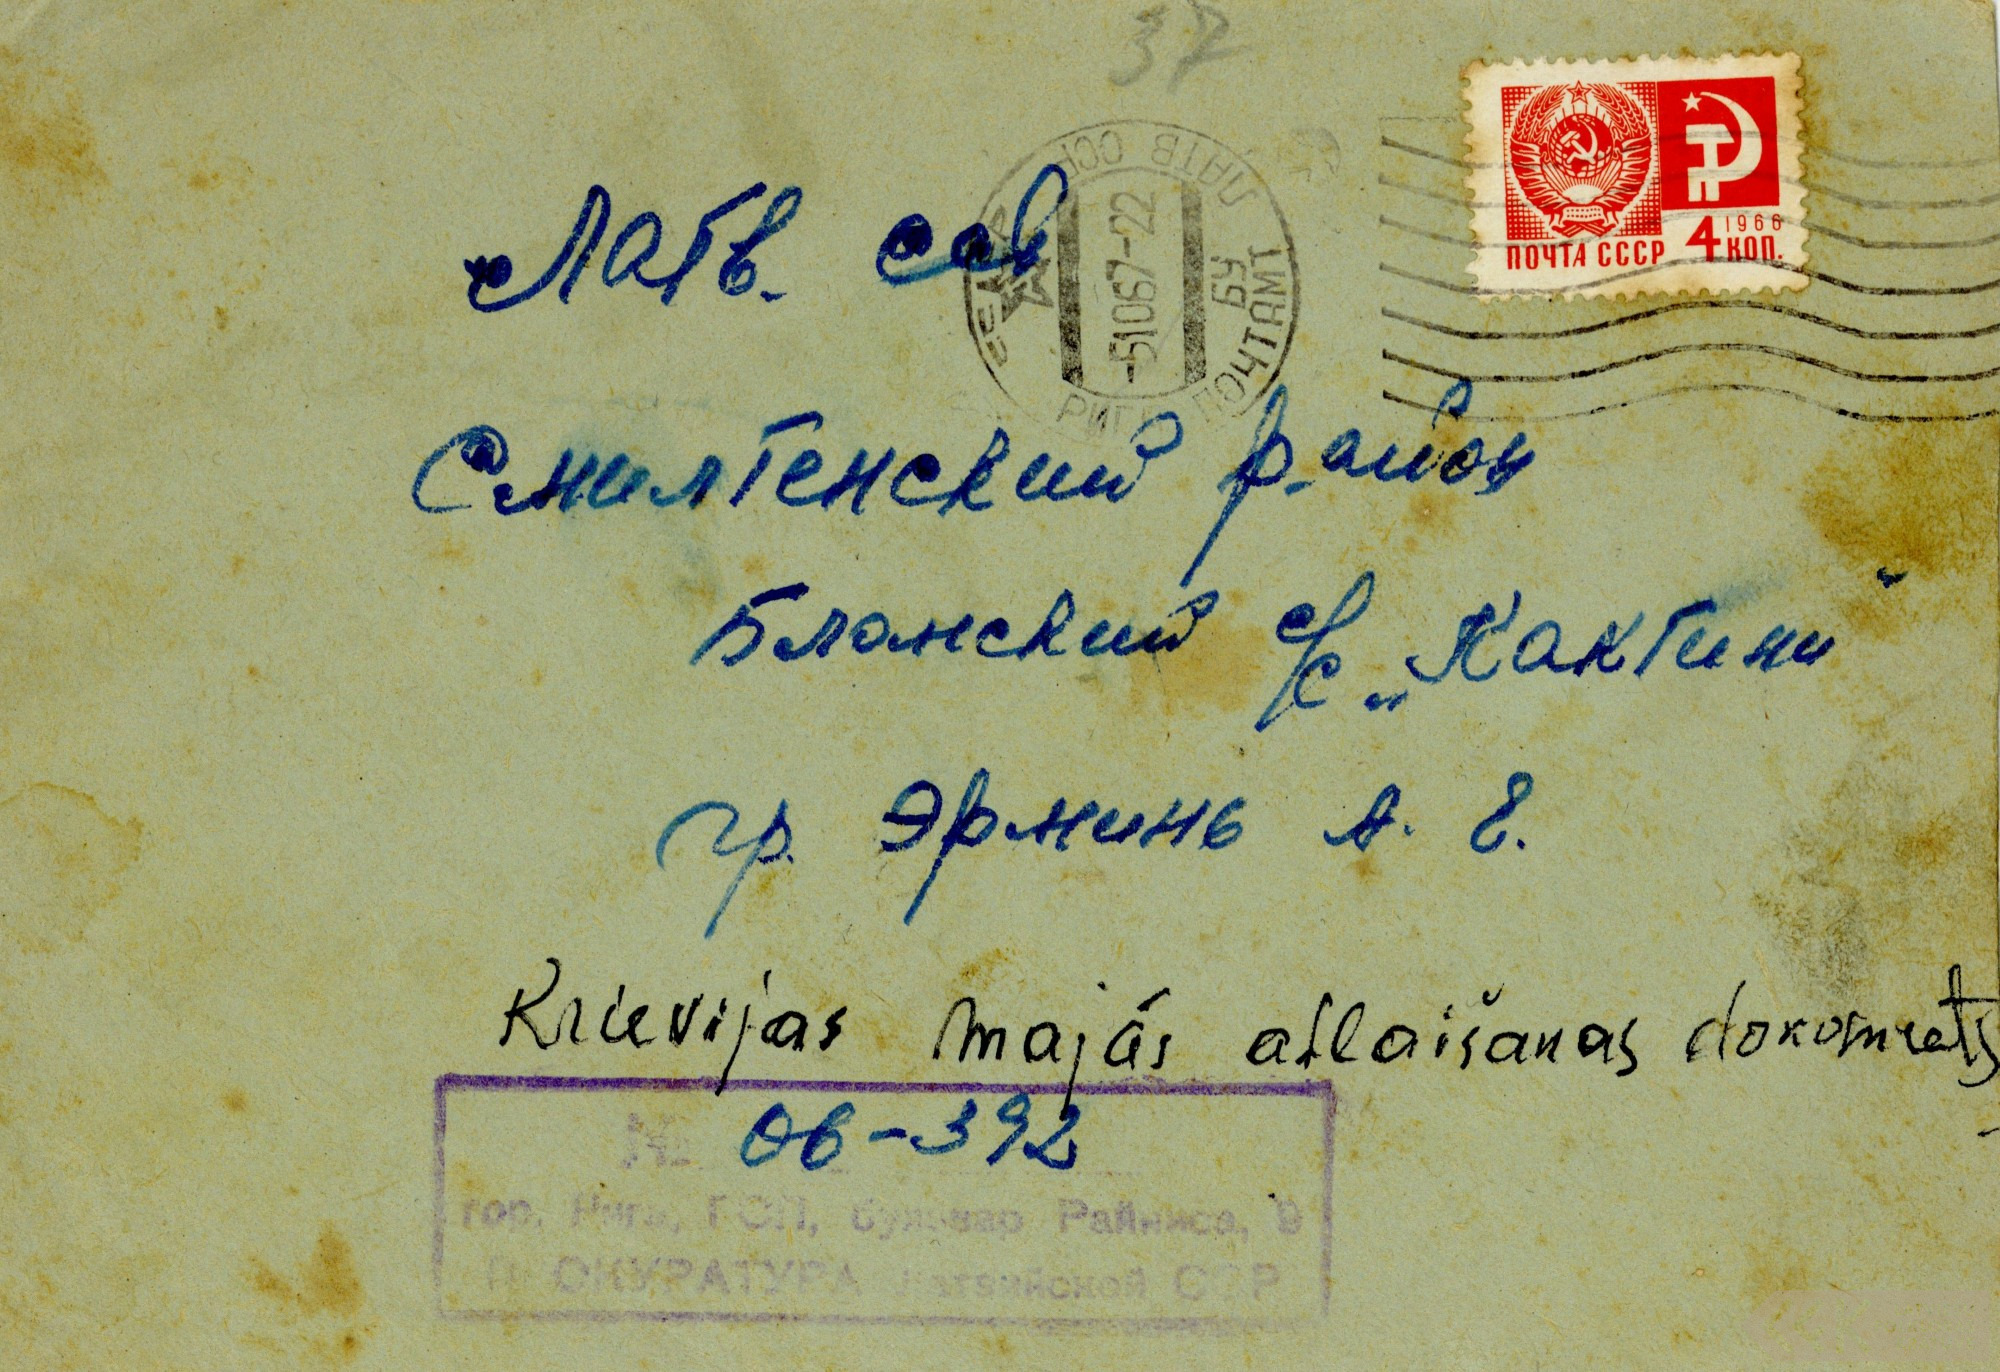 37
ПОЧТА СССР 4 1966 КОП.
ЛАТВ ССР
-51067-22
БУ
РИГА ПОЧТАМТ
Латв. сср
Смилтенский район
Бланский с/с „Кактини"
гр. Эрминь А. Е.
Krievijas majás atlaišanas
№ 06-392
гор. Рига, ГСП, бульвар Райниса, 9
ПРОКУРАТУРА Латвийской ССР